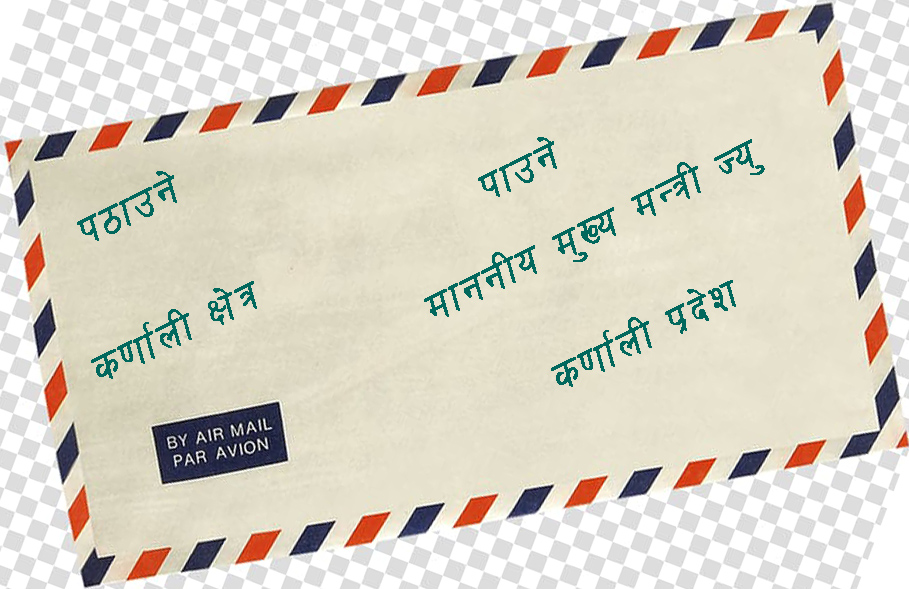 पठाउने
कर्णाली क्षेत्र
पाउने
माननीय मुख्य मन्त्री ज्यु
कर्णाली प्रदेश
BY AIR MAIL
PAR AVION